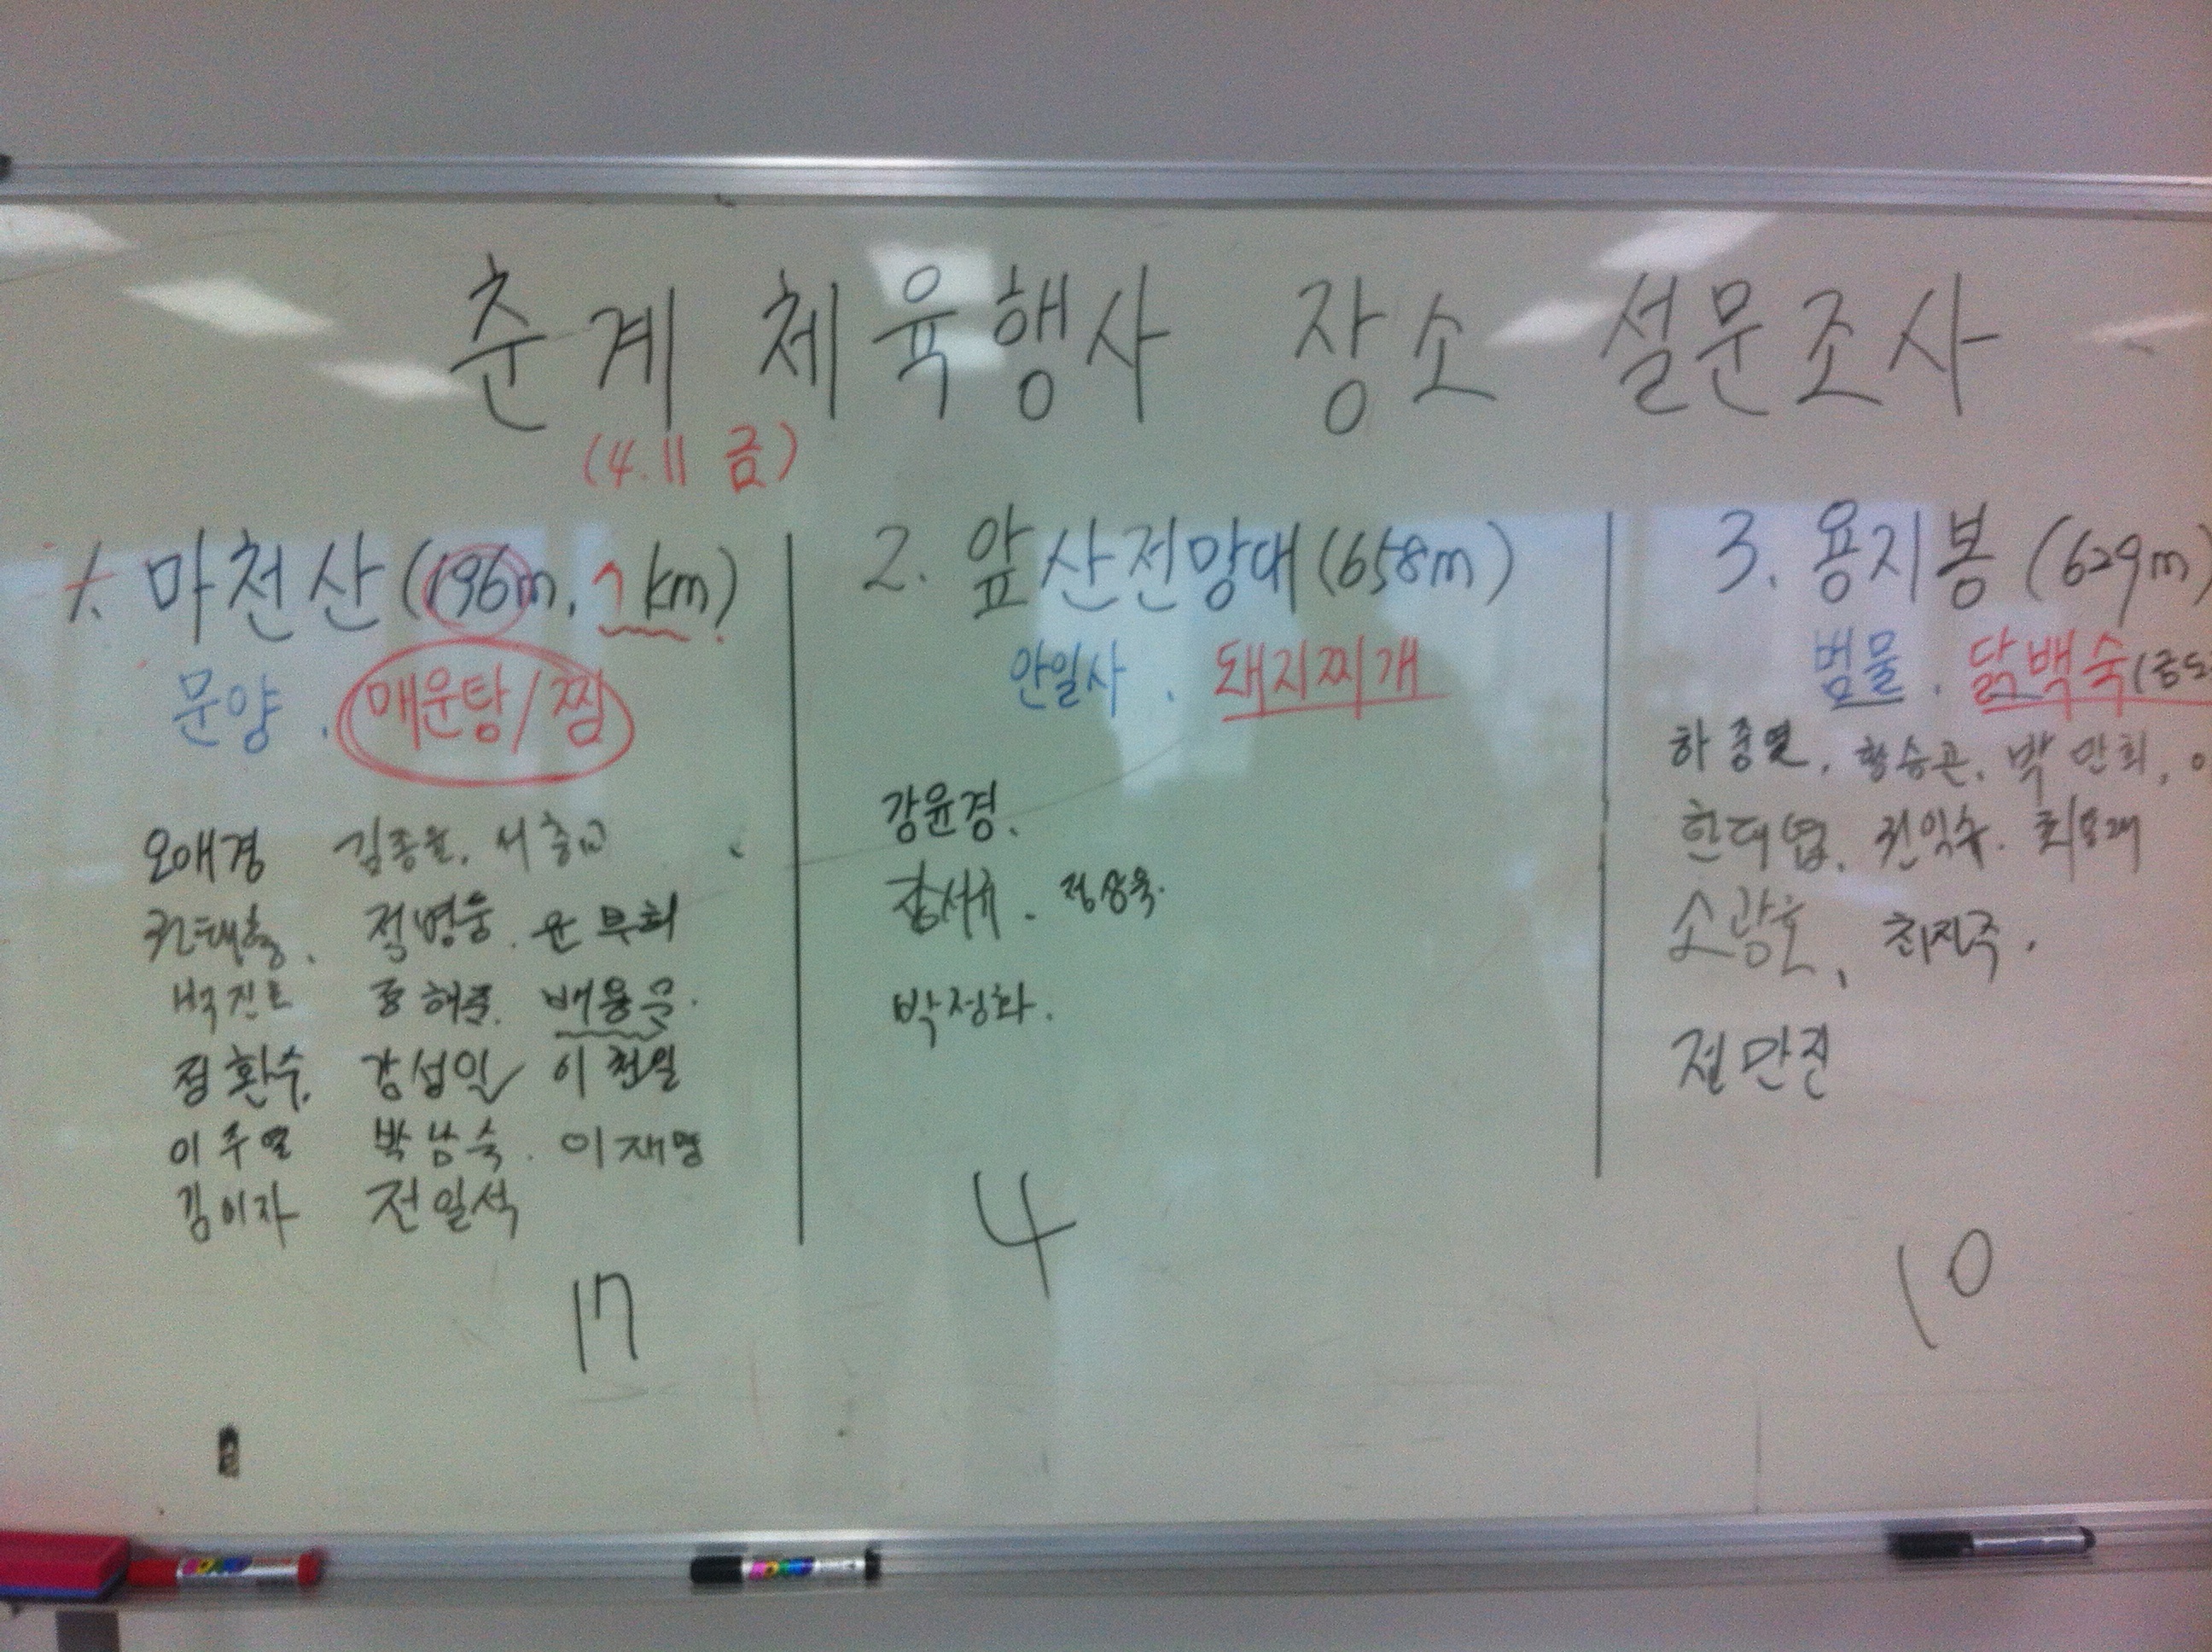 춘계 체육행사 장소 설문조사
(4.11 금)
1. 마천산 (196m, 7km)
문양. 매운탕/찜
오애경 김종윤. 서충교
권태형. 정병웅. 윤부희
박진도 배용운.
정환수. 강성일 이천일
이주열 박남숙. 이재명
김이자 전일석
17
2. 앞산전망대 (658m)
안일사. 돼지찌개
강윤경.
정상욱.
박정화.
4
3. 용지봉 (629m)
범물. 닭백숙
하종열, 황승곤, 박만희,
한대엽. 권익수.
소광호, 최진주.
전만진
10